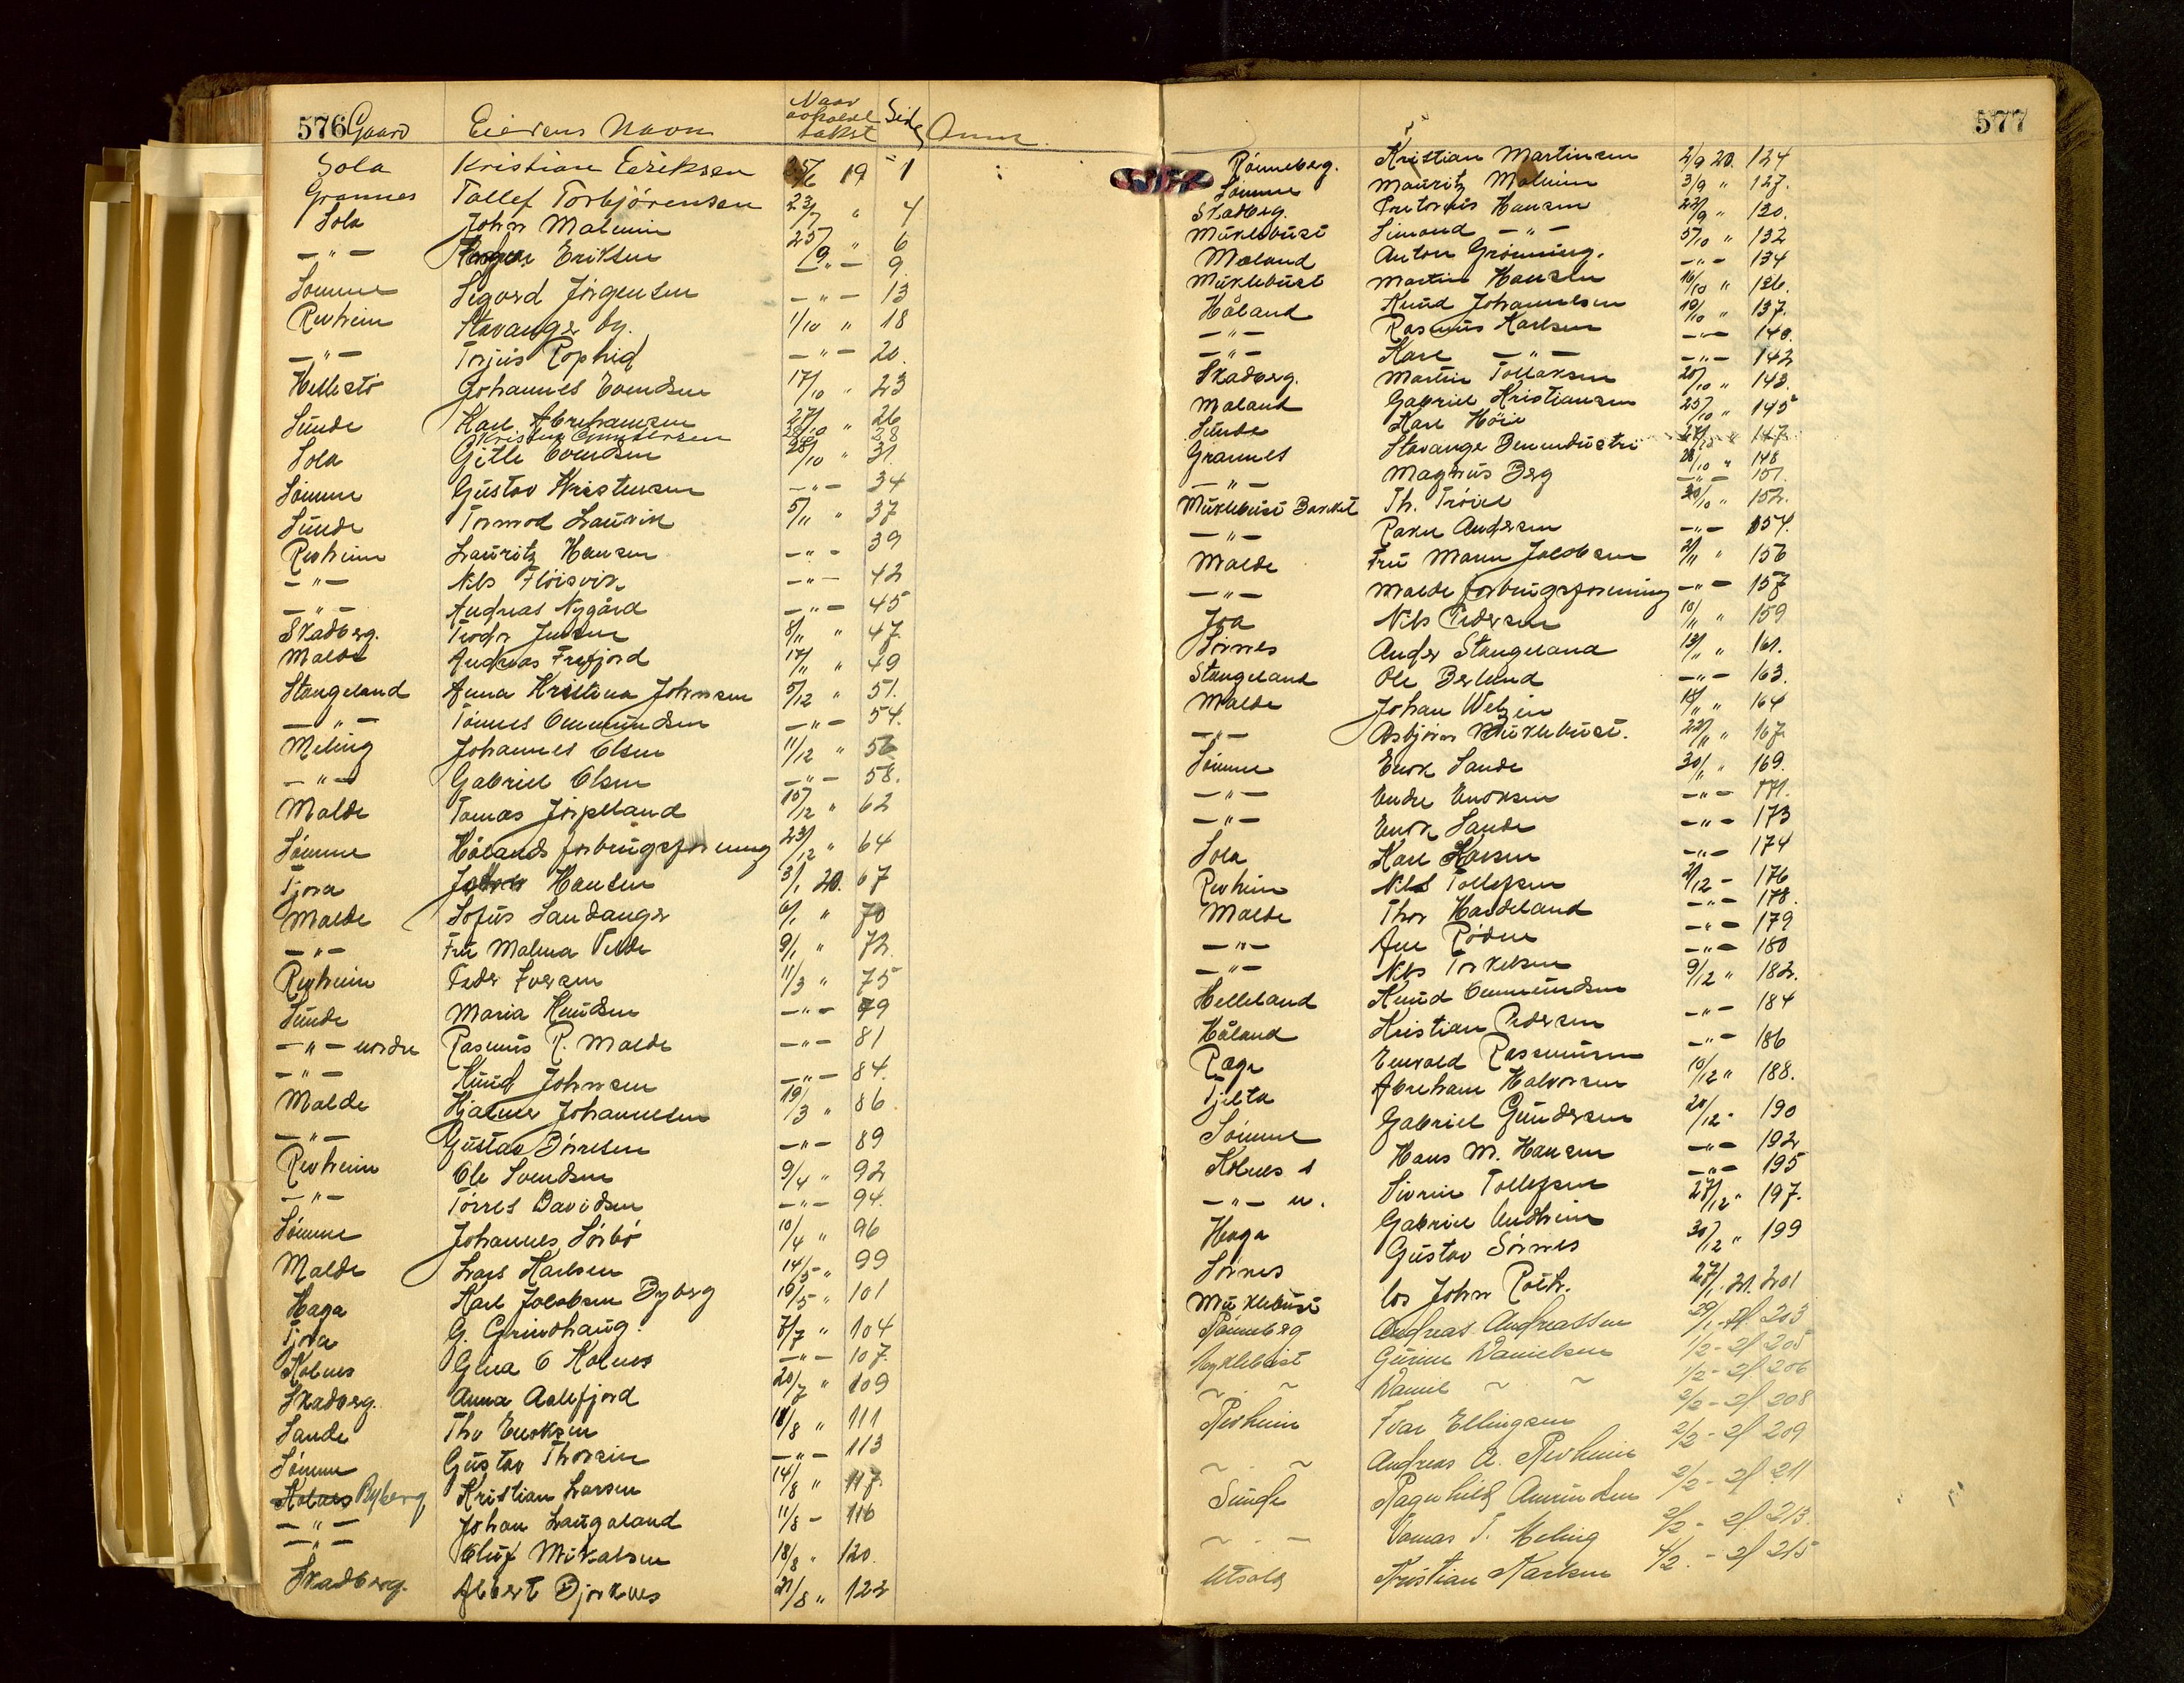 576 Gaard Eierens Navn Naar avholdt takst Side Anm.
Sola Kristian Eriksen 25/6 19 1
Grannes Tallef Torbjörensen 23/7 " 4
Sola John Malmin 25/9 " 6
— " — Eriksen — " — 9
Sömme Sigvard Jörgensen — " — 13
Revheim Stavanger by. 1/10 " 18
— " — Torjus — " — 20.
Hellestö Johannes Evendsen 17/10 " 23
Sunde Karl Abrehamsen 27/10 " 26
Kristen Gundersen 28/10 28
Sola Gitle Evendsen 28/10 " 31
Sömme Gustav Kristensen — " — 34
Sunde Tormod Laurvik 5/11 " 37
Revheim Lauritz Hansen — " — 39
— " — Nils Flöisvik — " — 42
— " — Andreas Nygård — " — 45
Skadberg. Teodor Jensen 8/11 " 47
Malde Andreas Frafjord 17/11 " 49
Stangeland Anna Kristina Johnsen 5/12 " 51.
— " — Tönnes Ommundsen — " — 54.
Meling Johannes Olsen 11/12 " 56
— " — Gabriel Olsen — " — 58.
Malde Tomas Jörpeland 15/12 " 62
Sömme Hålands forbrugsforening 23/12 " 64
Tjora Hansen 3/1 20. 67
Malde Sofus Sandanger 6/1 " 70
— " — Fru Malena Telde 9/1 " 72
Revheim Peder Iversen 11/3 " 75
Sunde Maria Knudsen — " — 79
— " — nordre Rasmus R. Malde — " — 81
— " — Knud Johnsen — " — 84.
Malde Hjalmer Johannesen 19/3 " 86
— " — Gustav Börresen — " — 89
Revheim Ole Svendsen 9/4 " 92
— " — Törres Davidsen — " — 94.
Sömme Johannes Sörbö 10/4 " 96
Malde Lars Karlsen 14/5 " 99
Haga Karl Jakobsen Byberg 19/5 " 101
Tjora G. Grindhaug. 7/7 " 104
Kolnes Gina O Kolnes — " — 107.
Skadberg. Anna Aslefjord 20/7 " 109
Sande Tho Enoksen 10/8 " 111
Sömme Gustav Thorsen — " — 113
Kolnes Byberg Kristian Larsen 14/8 " 117.
— " — Johan Laugaland 11/8 — 116
— " — Oluf Mikalsen 18/8 " 120.
Skadberg. Albert Bjorknes 21/8 " 122
577
Rönneberg. Kristian Martinsen 2/9 20. 124
Sömme Mauritz Malmin 3/9 " 127.
Skadberg. Pretorius Hansen 22/9 " 130.
Müklebust Simond — " — 5/10 " 132
Mæland Anton Grönning. — " — 134
Müklebust Martin Hansen 16/10 " 136.
Håland Knud Johannesen 19/10 " 137.
— " — Rasmus Karlsen — " — 140.
— " — Karl — " — — " — 142
Skadberg. Martin Tollaksen 20/10 " 143.
Maland Gabriel Kristiansen 25/10 " 145
Sunde Karl Höie 27/10 147
Grannes Stavanger Benindustri 28/10 " 148
— " — Magnus Berg — " — 151.
Müklebust Th. Tröiel 30/10 " 152.
— " — Andersen — " — 154.
Malde Fru Maren Jakobsen 2/11 " 156
— " — Malde forbrugsforening — " — 157
Joa Nils Pedersen 10/11 " 159
Sörnes Ander Stangeland 13/11 " 161.
Stangeland Ole Berland — " — 163.
Malde Johan Welzin 18/11 " 164
— " — Asbjörn Müklebust. 22/11 " 167.
Sömme Enok Sande 30/11 " 169.
— " — Endre Enoksen — " — 171.
— " — Enok Sande — " — 173
Sola Karl Karsen — " — 174
Revheim Nils Tollefsen 2/12 — 176
Malde Thor Haveland — " — 178.
— " — Ane Rödne — " — 179
— " — Nils Torkelsen — " — 180
Helleland Knud Ommundsen 9/12 " 182.
Håland Kristian Pedersen — " — 184
Rege Enevald Rasmussen — " — 186
Tjelta Abreham Halvorsen 10/12 " 188.
Sömme Gabriel Gundersen 20/12 " 190
Kolnes s Hans M. Hansen — " — 192
— " — n. Sivrin Tollefsen — " — 195
Haga Gabriel Audheim 27/12 " 197.
Sörnes Gustav Sörnes 30/12 " 199
Müklebust los John Roth. 27/1. 21. 201
Rönneberg Andreas Andreassen 29/1. 21 203
Myklebust Gurine Danielsen 1/2 - 21 205
~ . ~ Daniel ~ ~ 1/2 - 21 206
Revheim Ivar Ellingsen 2/2 - 21 208
~ . ~ Andreas A. Revheim 2/2 - 21 209
Sunde Ragnhild Amundsen 2/2 - 21 211
~ . — Tomas T. Meling 2/2 - 21 213.
Utsola Kristian Karlsen 4/2. - 21 215